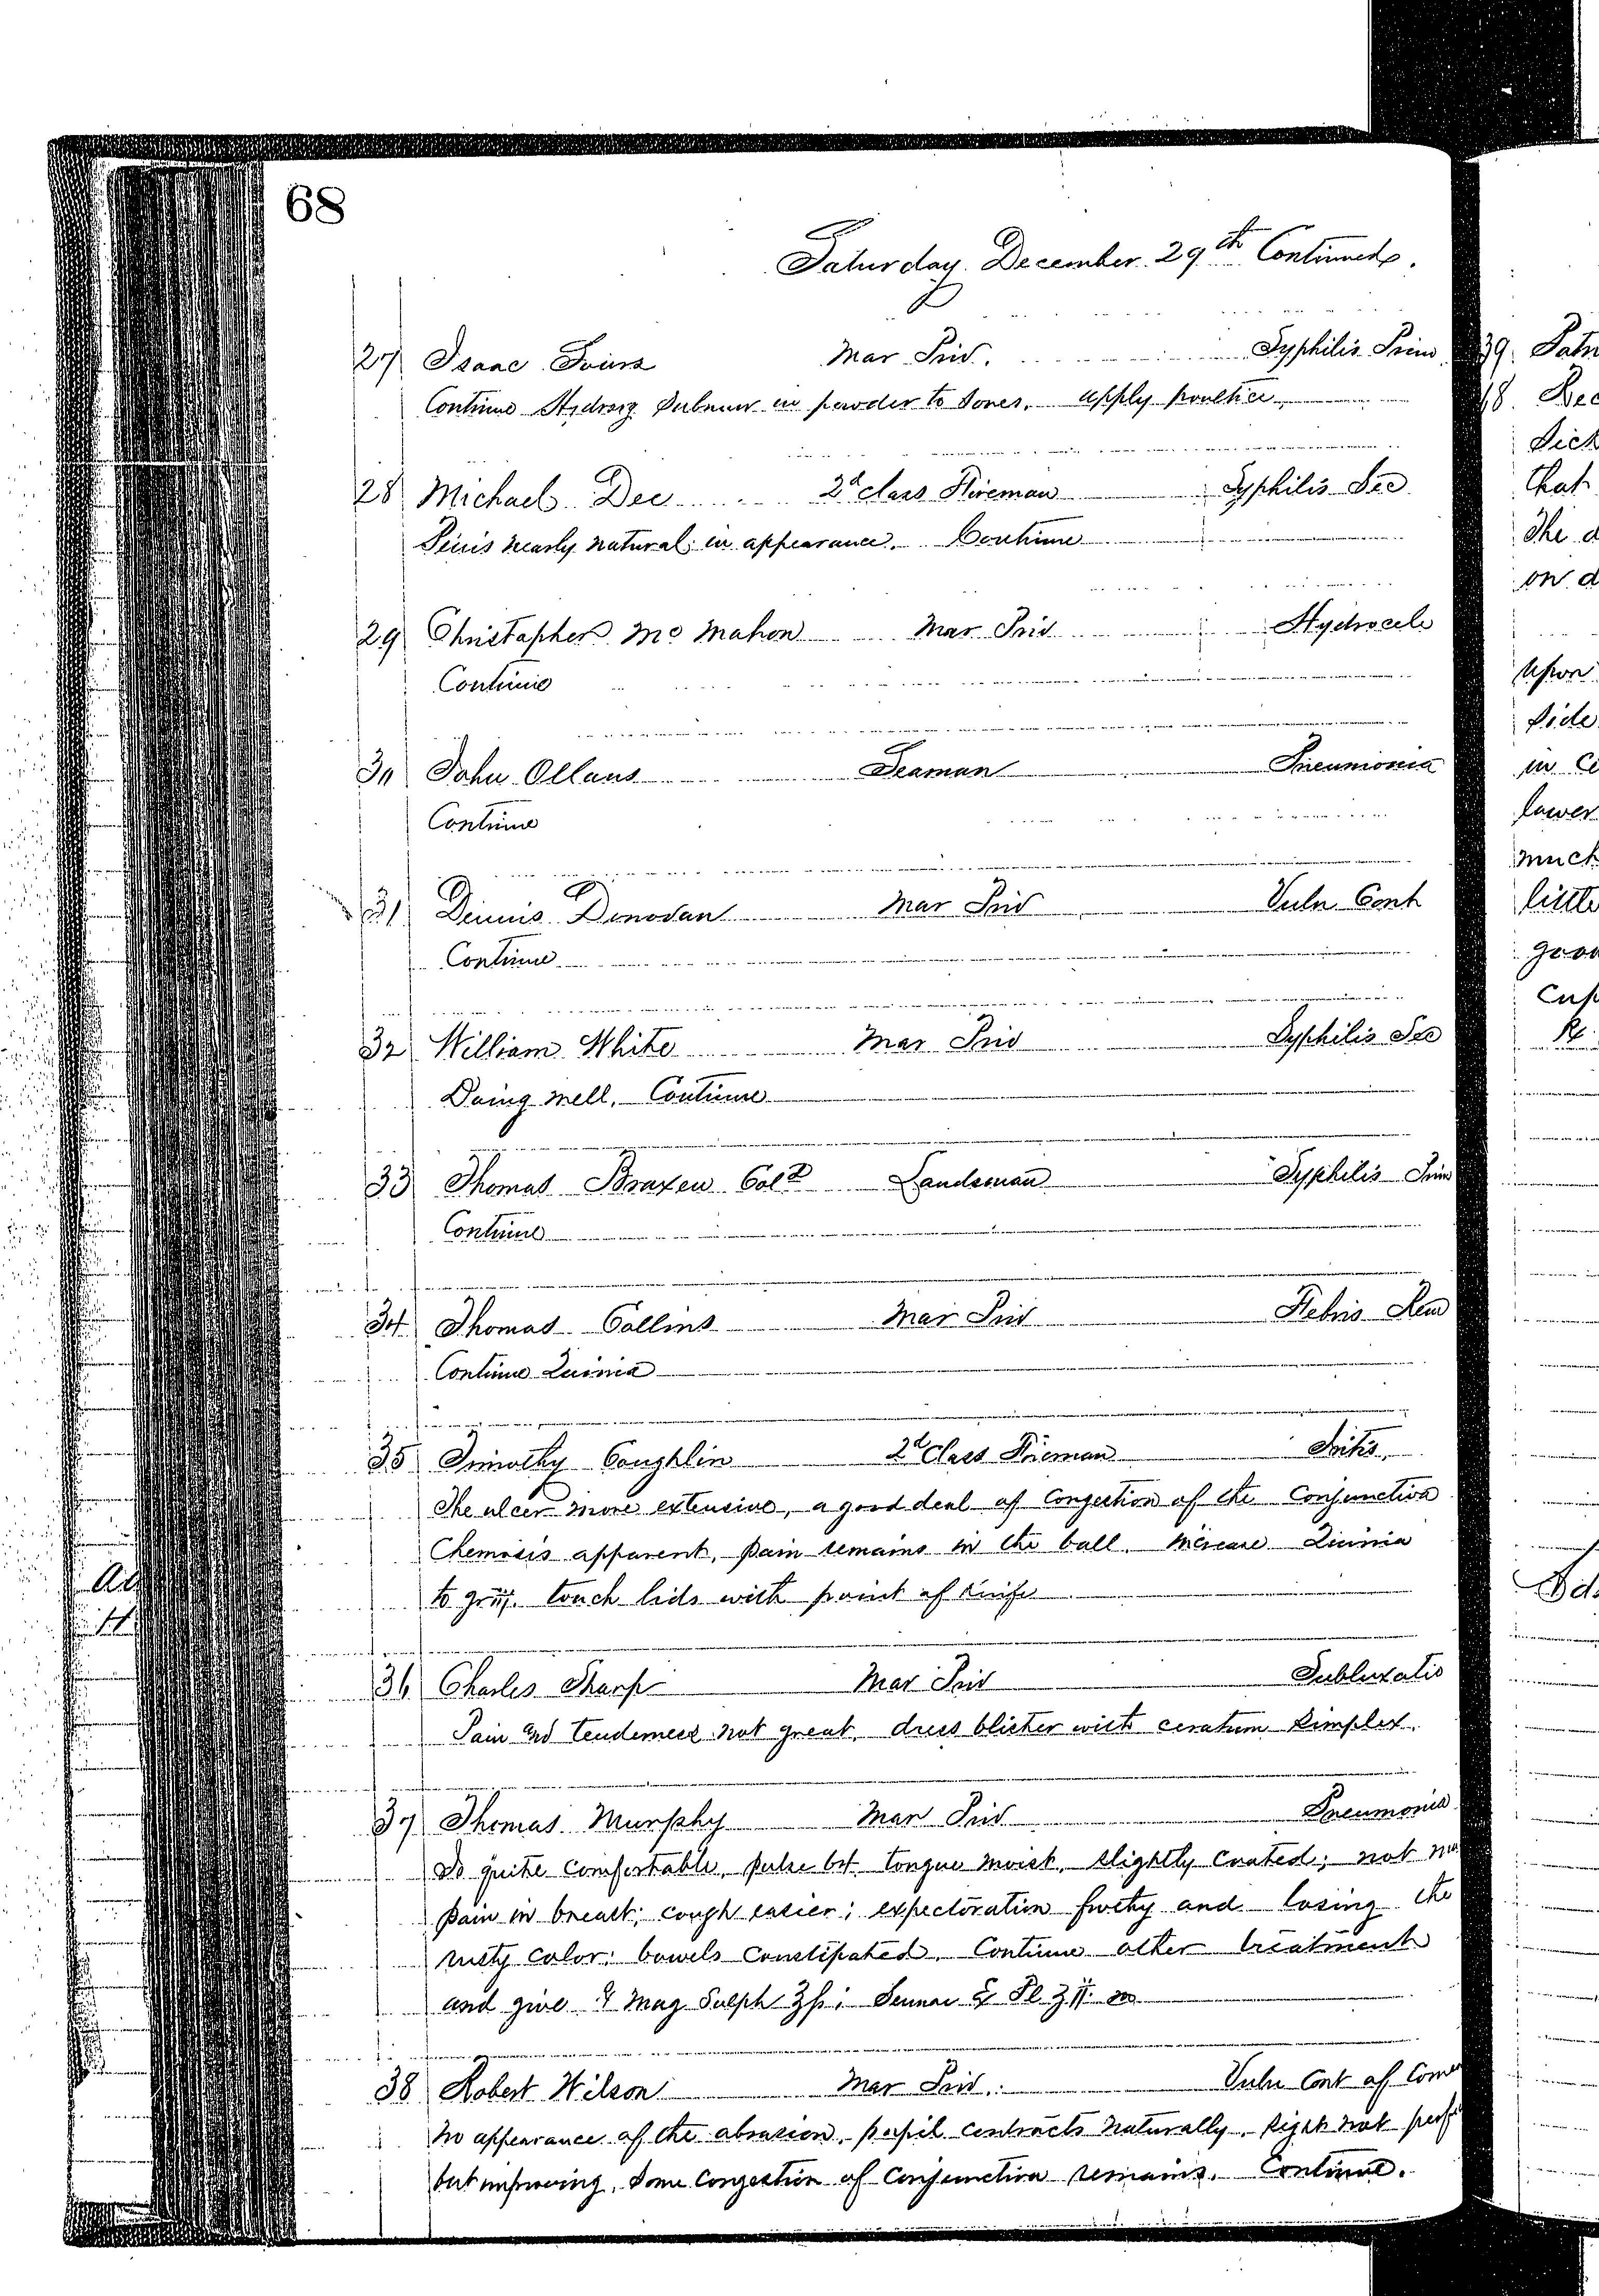 68
Saturday December 29th Continued.
27 Isaac Mar Priv. Syphilis Prim
Continue Hydrarg in powder to sores. apply poultice
28 Michael Dee 2d class Fireman Syphilis Sec
Penis nearly natural in appearance. Continue
29 Christapher Mc Mahon Mar Priv Hydrocele
Continue
30 John Ollaus Seaman Pneumonia
Continue
31 Dennis Donovan Mar Priv Vuln Cont
Continue
32 William White Mar Priv Syphilis Sec
Doing well. Continue
33 Thomas Braxen Cold Landsman Syphilis Prim
Continue
34 Thomas Collins Mar Priv Febris Rem
Continue Quinia
35 Timothy Coughlin 2d Class Fireman Iritis.
The ulcer more extensive, a good deal of Congestion of the Conjunctiva
Chemosis apparent, pain remains in the ball. increase Quinia
to grij. touch lids with point of knife
36 Charles Sharp Mar Priv Subluxatio
Pain and tenderness not great, dress blister with ceratum simplex.
37 Thomas Murphy Mar Priv Pneumonia
Is quite comfortable, pulse 64 tongue moist, slightly coated; not
pain in breast; cough easier; expectoration frothy and losing the
rusty color; bowels constipated. Continue other treatment
and give Mag Sulph ʒß; Sennae Fl ʒij.
38 Robert Wilson Mar Priv. Vuln Cont of
No appearance of the abrasion, pupil contracts naturally, sight not
but improving, some Congestion of Conjunctiva remains. Continue.
39
that
The
on
side
in
lower
much
little